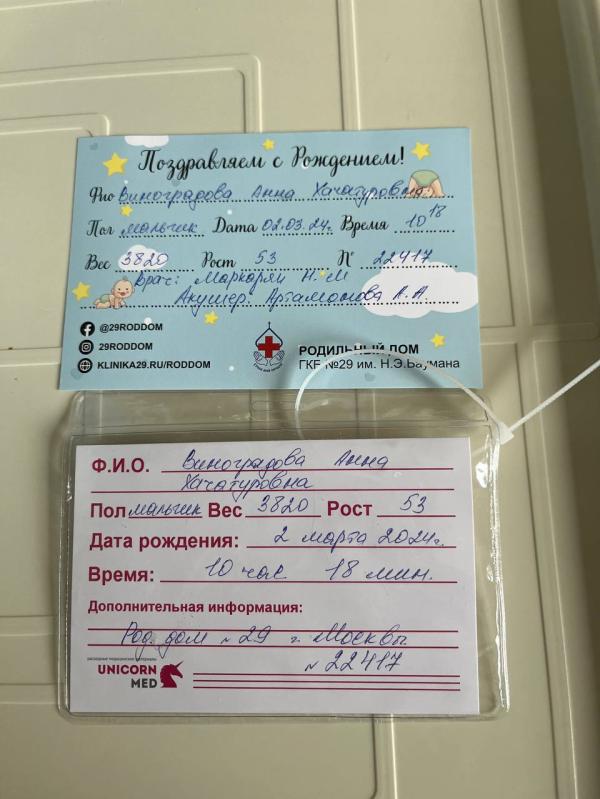 Поздравляем с Рождением!
Фио Виноградова Анна Хачатуровна
Пол мальчик Дата 02.03.24. Время 10 18
Вес 3820 Рост 53 N° 22417
Врач: Маркарян Н.М
Акушер: Артамонова А.А.
@29RODDOM
29RODDOM
KLINIKA29.RU/RODDOM
РОДИЛЬНЫЙ ДОМ
ГКБ №29 им. Н.Э.Баумана
Ф.И.О. Виноградова Анна
Хачатуровна
Пол мальчик Вес 3820 Рост 53
Дата рождения: 2 марта 2024г.
Время: 10 час 18 мин.
Дополнительная информация:
Род. дом №29 г. Москвы.
№22417
расходные медицинские материалы
UNICORN
MED